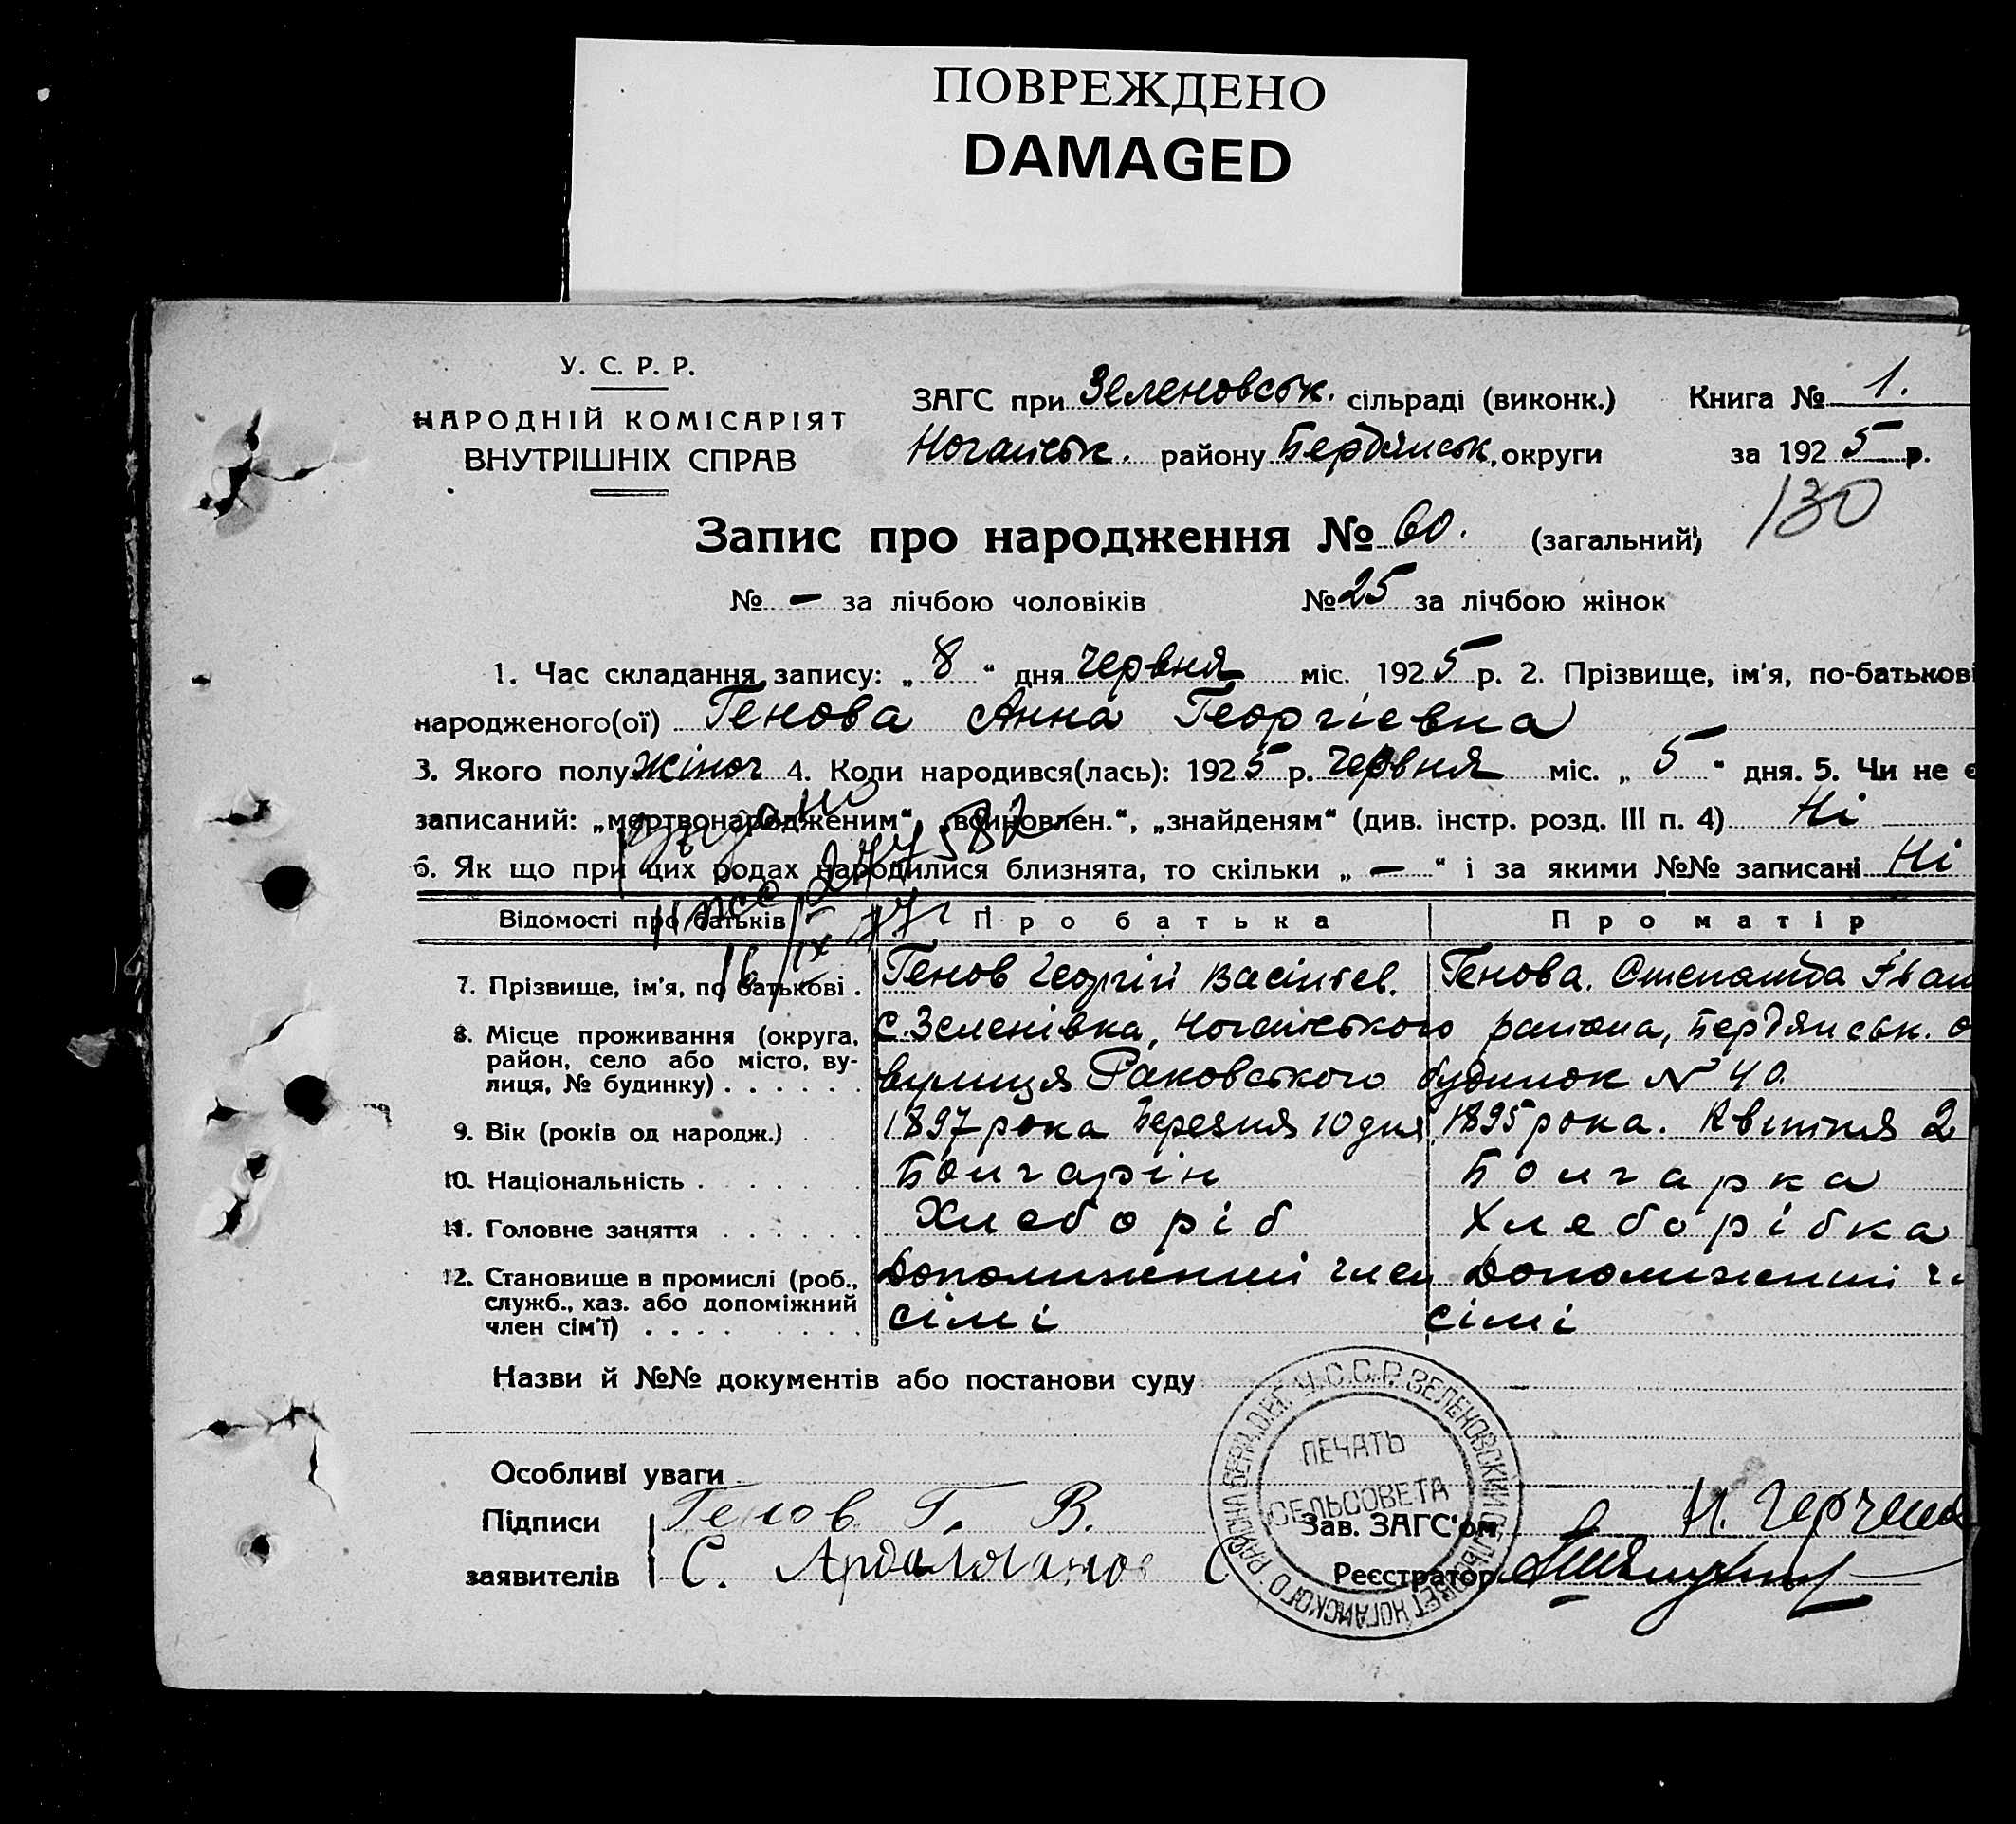 ПОВРЕЖДЕНО
DAMAGED
У. С. Р. Р.
НАРОДНІЙ КОМІСАРІЯТ
ВНУТРІШНІХ СПРАВ
ЗАГС при Зеленовськ. сільраді (виконк.) Книга № 1.
Ногайськ. району Бердянськ. округи за 1925 р.
130
Запис про народження № 60. (загальний)
№ — за лічбою чоловіків № 25 за лічбою жінок
1. Час складання запису: „ 8 “ дня червня міс. 1925 р. 2. Прізвище, ім'я, по-батькові
народженого(ої) Генова Анна Георгіевна
3. Якого полу жіноч 4. Коли народився(лась): 1925 р. червня міс. „ 5 “ дня. 5. Чи не є
записаний: „мертвонародженим“, „воиновлен.“, „знайденям“ (див. інстр. розд. III п. 4) Ні
6. Як що при цих родах народилися близнята, то скільки „ — “ і за якими №№ записані Ні
Відомості про батьків Про батька Про матір
7. Прізвище, ім'я, по батькові . Генов Георгій Васільев. Генова. Степаніда Іван
8. Місце проживання (округа, С. Зеленівка, Ногайського района, Бердянськ. о
район, село або місто, ву-
лиця, № будинку) . . . . . . вулиця Раковського будинок № 40.
9. Вік (років од народж.) . 1897 рока Березня 10 дня 1895 рока. Квітня 2
10. Національність . . . . . Болгарін Болгарка
11. Головне заняття . . . . . . Хлеборіб Хлеборібка
12. Становище в промислі (роб., Допоміженний член Допоміженний ч
служб., хаз. або допоміжний
член сім'ї) . . . . . . . . сімі сімі
Назви й №№ документів або постанови суду
Особливі уваги
Підписи Генов Г. В. Зав. ЗАГС'ом
заявителів С. Реєстратор
У.С.С.Р. ЗЕЛЕНОВСКИЙ СЕЛЬСОВЕТ НОГАЙСКОГО РАЙОНА
ПЕЧАТЬ
СЕЛЬСОВЕТА